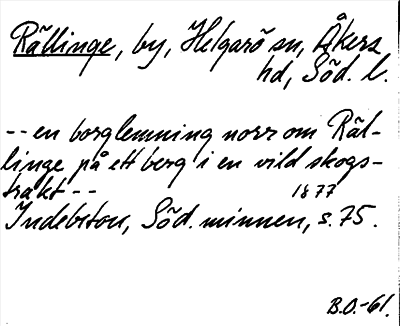 Rällinge, by, Helgarö sn, Åkers
hd, Söd. l.
-- en borglemning norr om Räl-
linge på ett berg i en vild skogs-
trakt --
1877
Indebetou, Söd. minnen, s. 75.
B.O.-61.